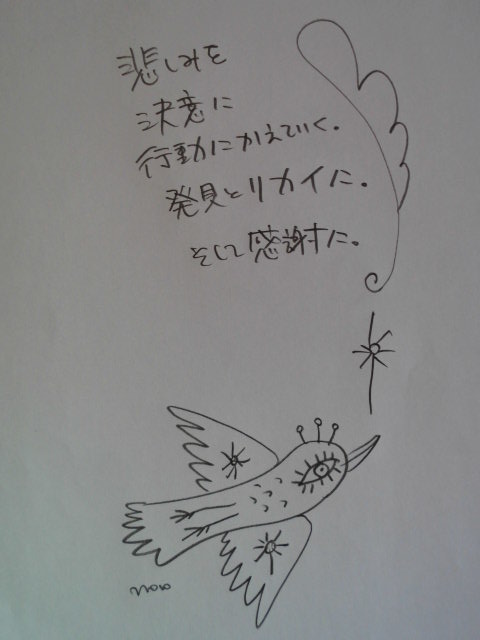 悲しみを
決意に
行動にかえていく。
発見とリカイに。
そして感謝に。